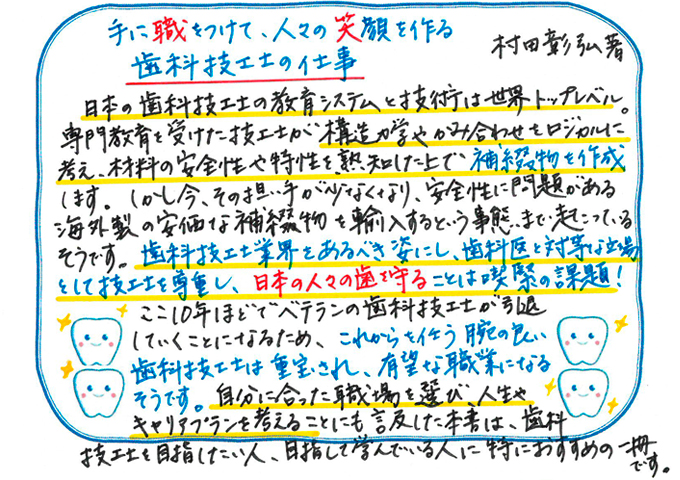 手に職をつけて、人々の笑顔を作る
歯科技工士の仕事
村田彰弘著
日本の歯科技工士の教育システムと技術は世界トップレベル。
専門教育を受けた技工士が構造力学やかみ合わせをロジカルに
考え、材料の安全性や特性を熟知した上で補綴物を作成
します。しかし今、その担い手が少なくなり、安全性に問題がある
海外製の安価な補綴物を輸入するという事態まで起こっている
そうです。歯科技工士業界をあるべき姿にし、歯科医と対等な立場
として技工士を尊重し、日本の人々の歯を守ることは喫緊の課題！
ここ10年ほどでベテランの歯科技工士が引退
していくことになるため、これからを担う腕の良い
歯科技工士は重宝され、有望な職業になる
そうです。自分に合った職場を選び、人生や
キャリアプランを考えることにも言及した本書は、歯科
技工士を目指したい人、目指して学んでいる人に特におすすめの一冊
です。